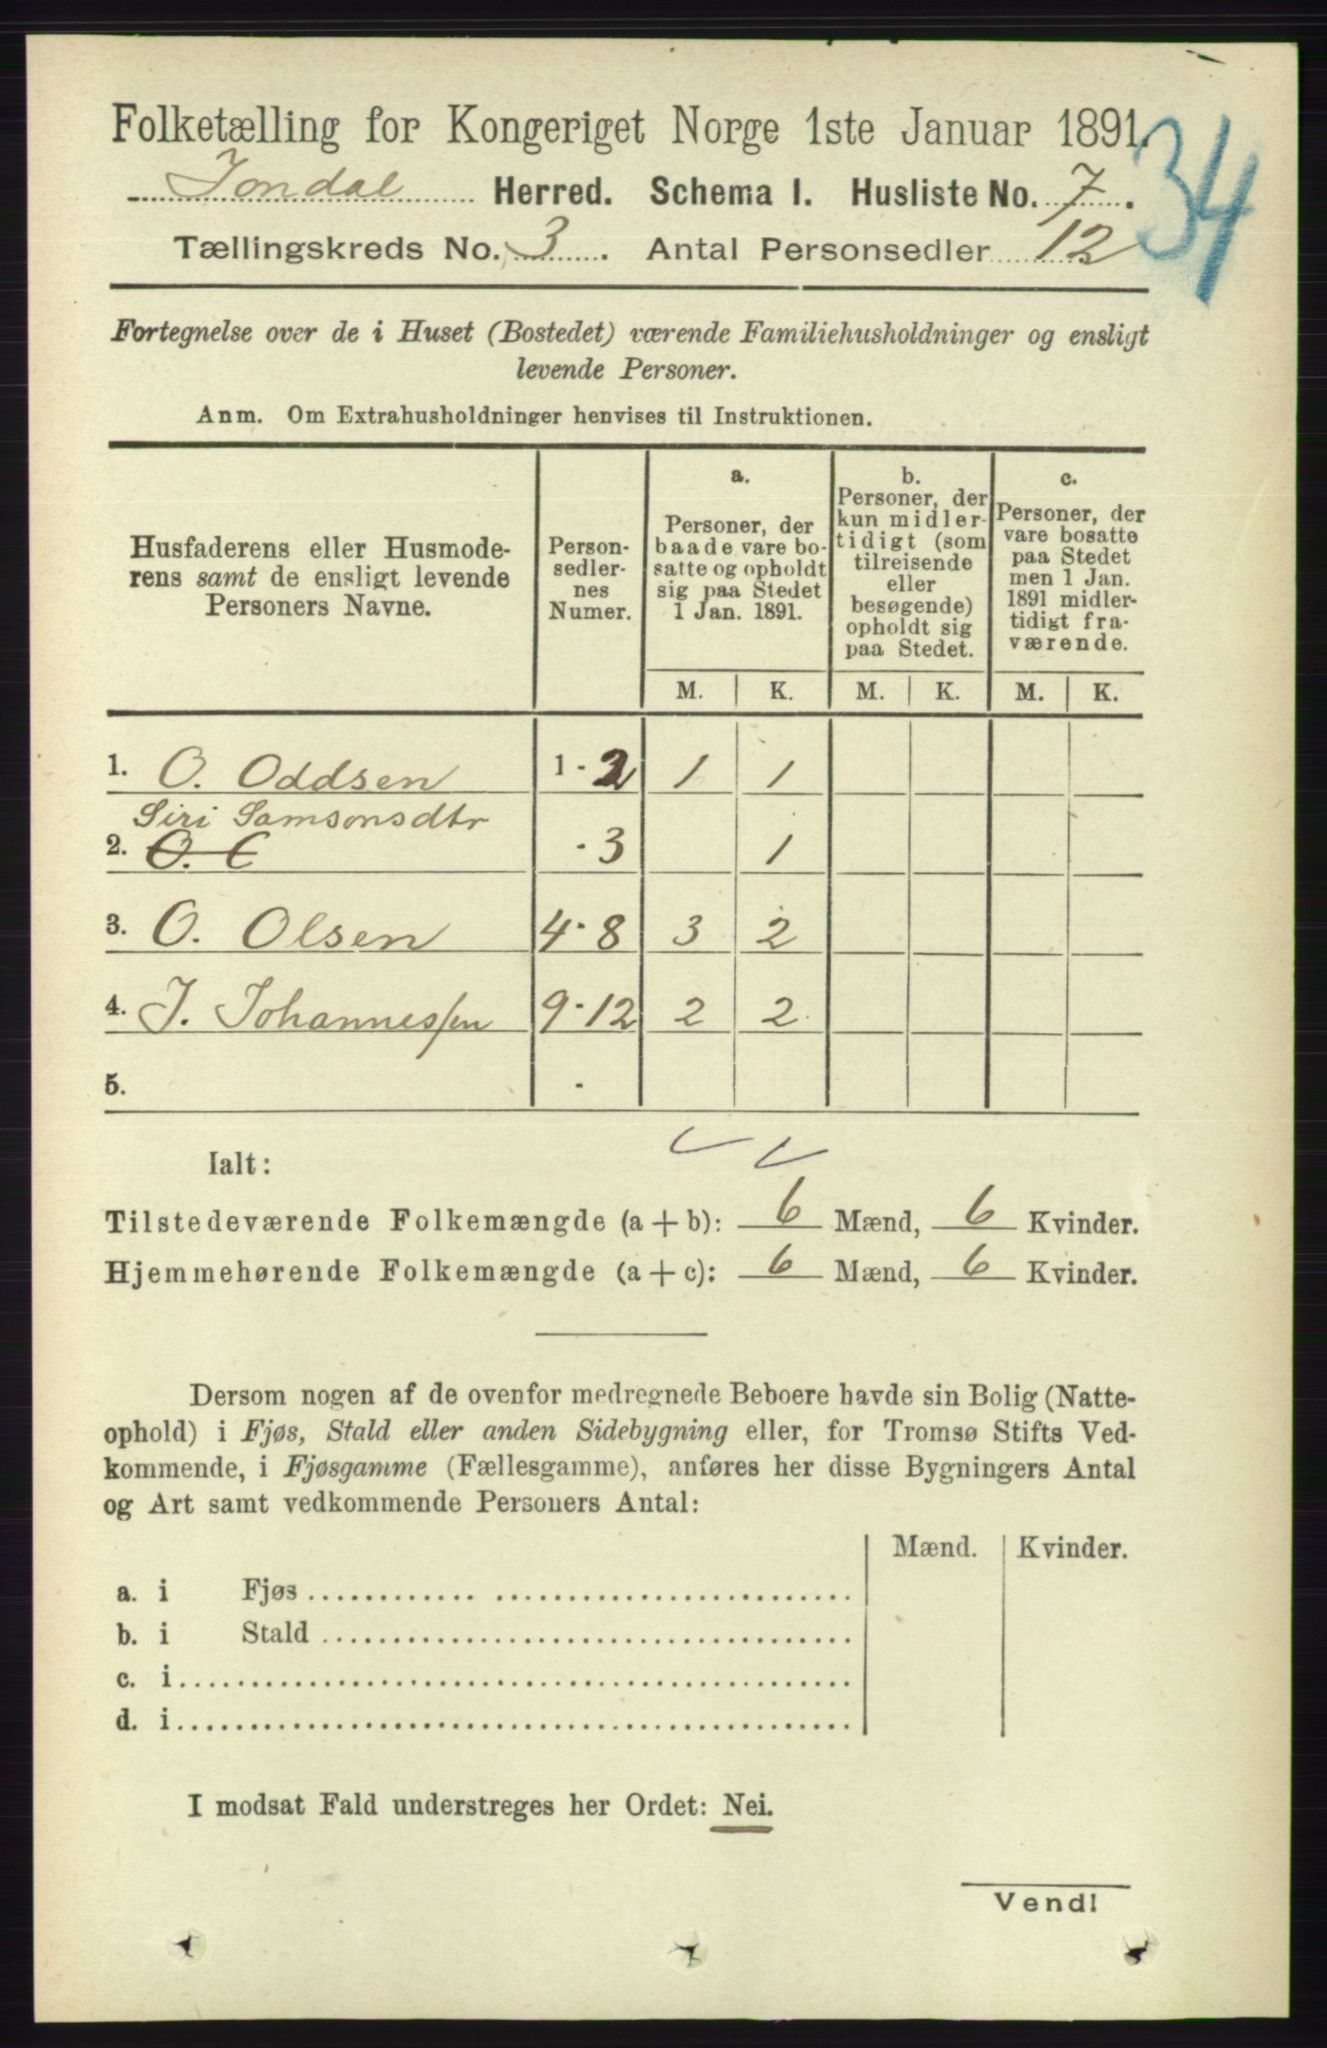 Folketælling for Kongeriget Norge 1ste Januar 1891.
34
Jondal Herred. Schema I. Husliste No. 7.
Tællingskreds No. 3. Antal Personsedler 12
Fortegnelse over de i Huset (Bostedet) værende Familiehusholdninger og ensligt
levende Personer.
Anm. Om Extrahusholdninger henvises til Instruktionen.
Husfaderens eller Husmode-
rens samt de ensligt levende
Personers Navne.
Person-
sedler-
nes
Numer.
a.
Personer, der
baade vare bo-
satte og opholdt
sig paa Stedet
1 Jan. 1891.
b.
Personer, der
kun midler-
tidigt (som
tilreisende
eller
besøgende)
opholdt sig
paa Stedet.
c.
Personer, der
vare bosatte
paa Stedet
men 1 Jan.
1891 midler-
tidigt fra-
værende.
M. K. M. K. M. K.
1. O. Oddsen 1 - 2 1 1
Siri Samsonsdtr
2. O. C - 3 1
3. O. Olsen 4 - 8 3 2
4. J. Johannessen 9 - 12 2 2
5. -
Ialt:
Tilstedeværende Folkemængde (a + b): 6 Mænd, 6 Kvinder.
Hjemmehørende Folkemængde (a + c): 6 Mænd, 6 Kvinder.
Dersom nogen af de ovenfor medregnede Beboere havde sin Bolig (Natte-
ophold) i Fjøs, Stald eller anden Sidebygning eller, for Tromsø Stifts Ved-
kommende, i Fjøsgamme (Fællesgamme), anføres her disse Bygningers Antal
og Art samt vedkommende Personers Antal:
Mænd. Kvinder.
a. i Fjøs
b. i Stald
c. i
d. i
I modsat Fald understreges her Ordet: Nei.
Vend!